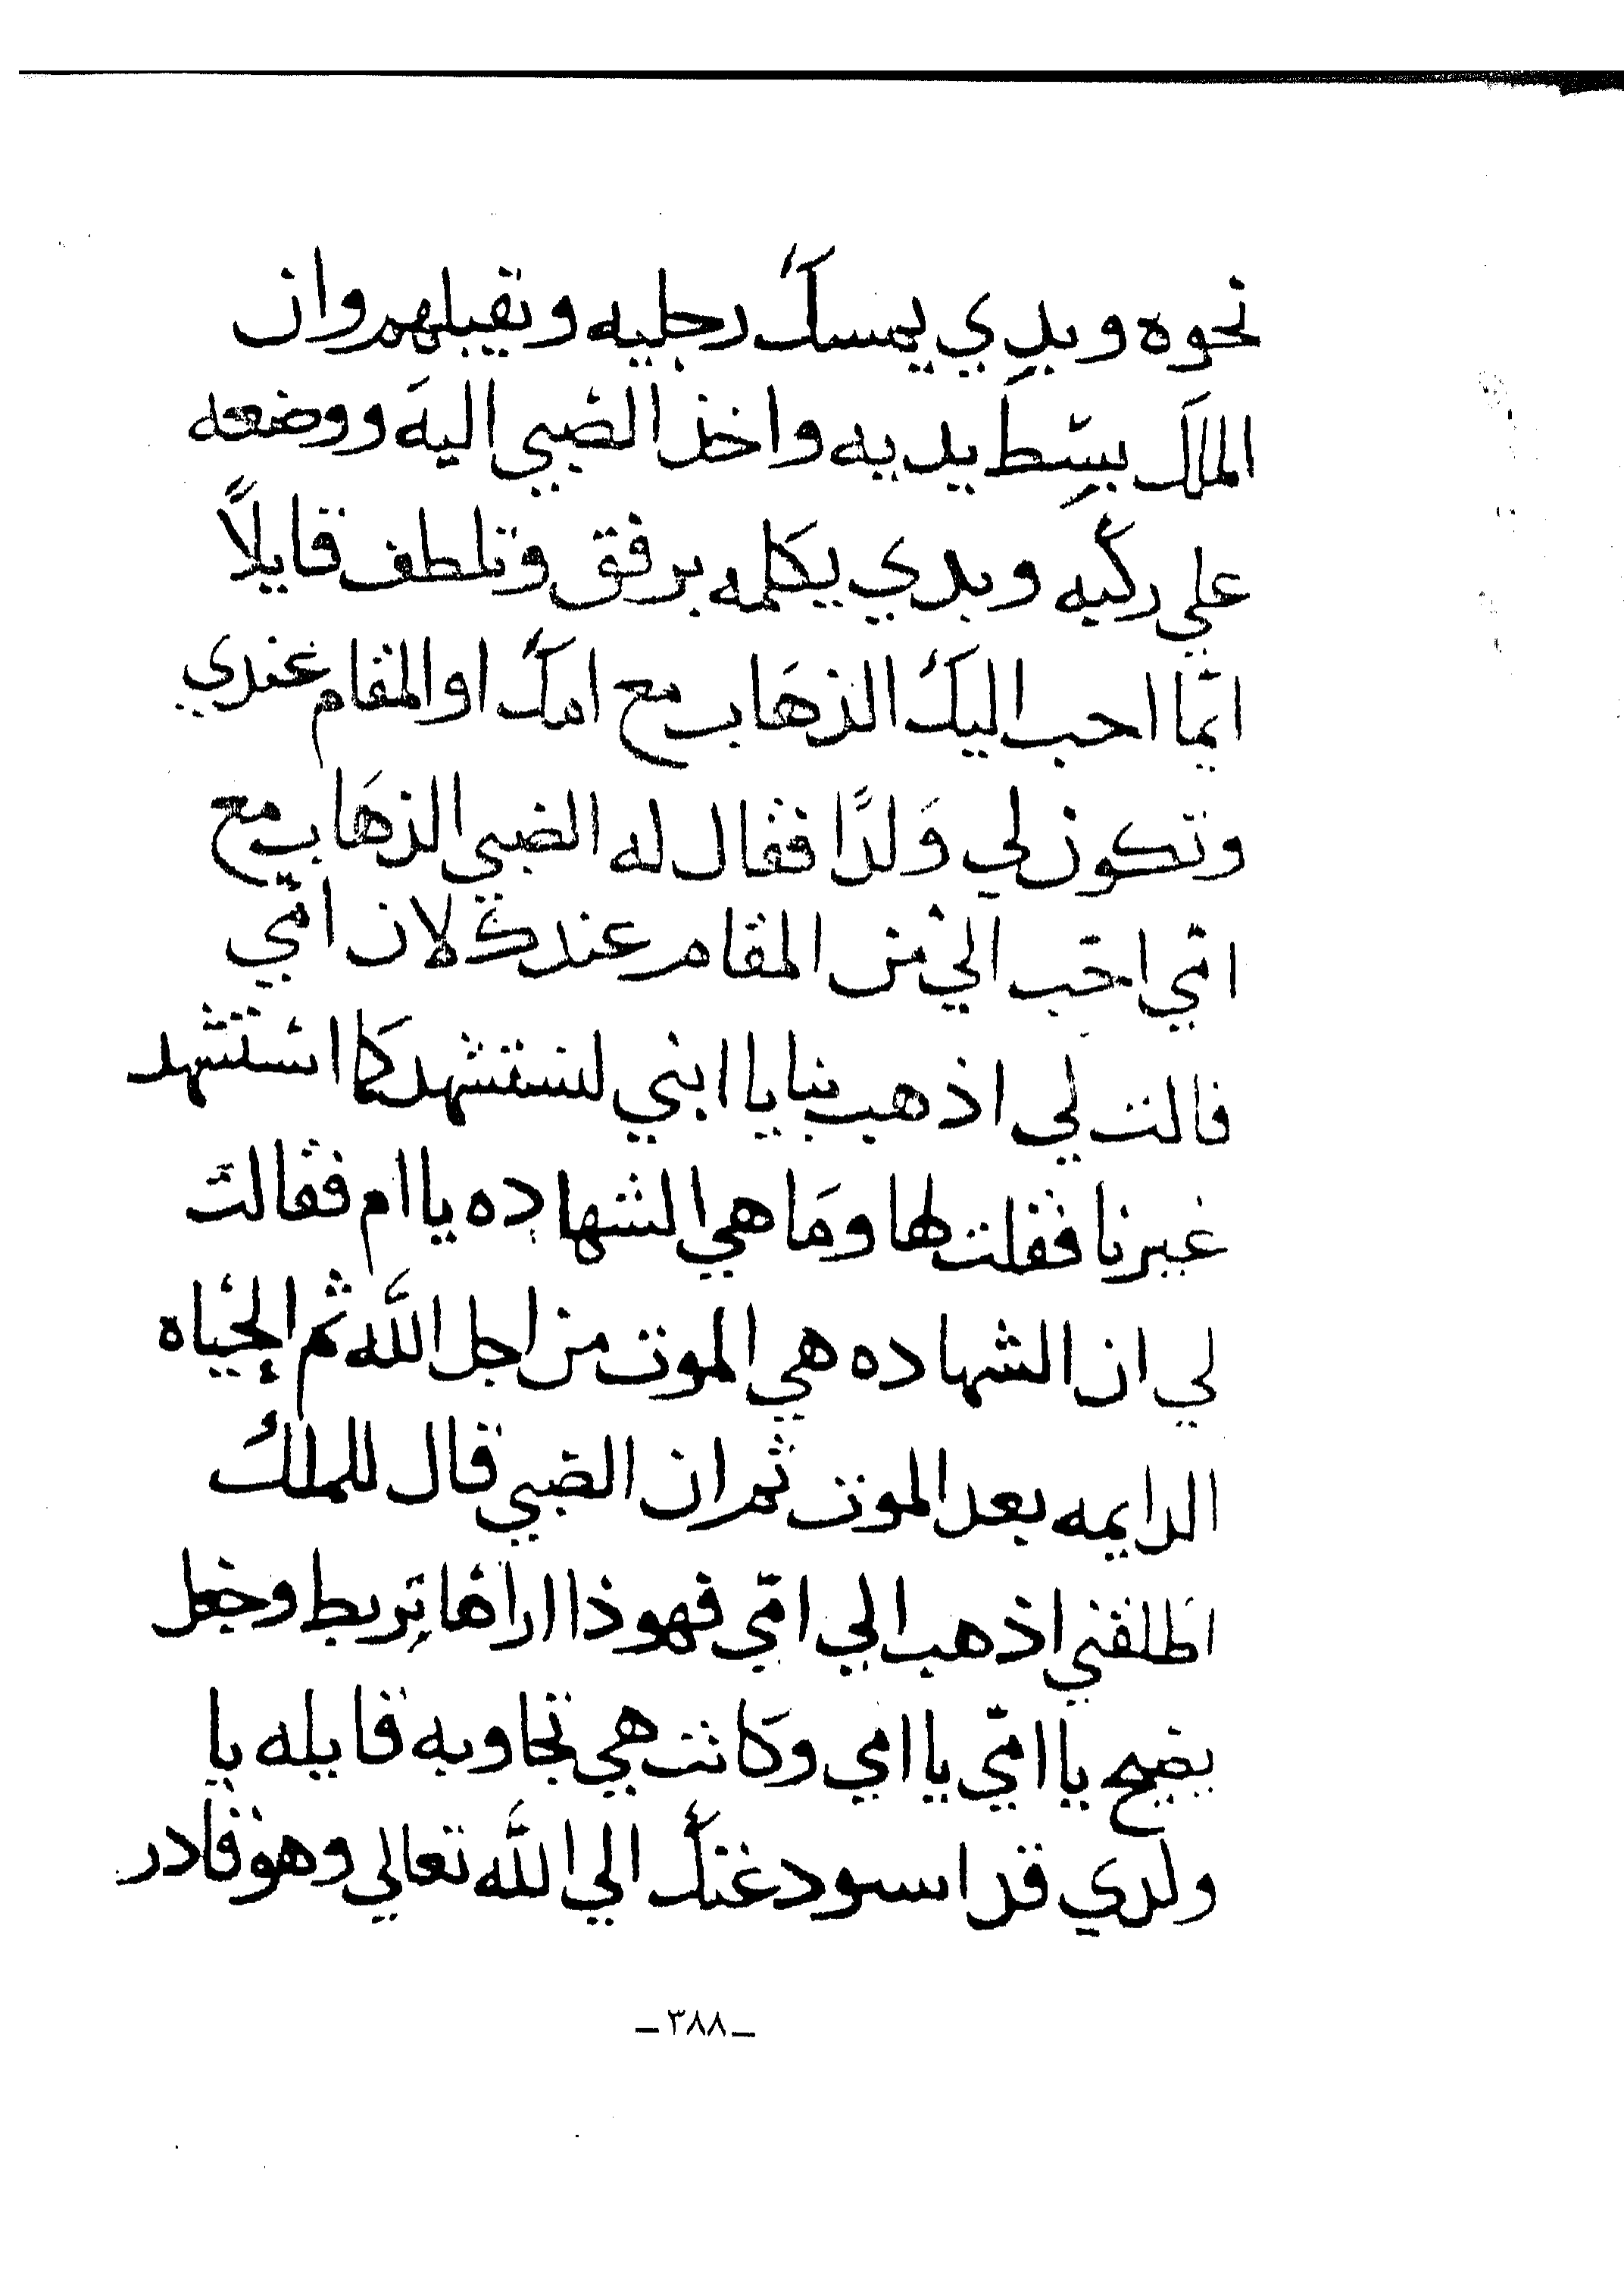 نحوه وبدي يمسك رجليه وتقيبلهم وان
الملك بسط يديه واخذ الصبي اليه ووضعه
علي ركبيه وبدي يكلمه برفق وتلطف قايلاً
ايما احب اليك الذهاب مع امك او المقام عندي
وتكون لي ولدًا فقال له الصبي الذهاب مع
امّي احب الي من المقام عندك لان امّي
قالت لي اذهب بنا يا ابني لنستشهد كما استشهد
غيرنا فقلت لها وما هي الشهاده يا ام فقالت
لي ان الشهاده هي الموت من اجل الله ثم الحياه
الدايمه بعد الموت ثم ان الصبي قال للملك
اطلقني اذهب الي امّي فهوذا اراها تربط وجعل
يصيح يا امّي يا امي وكانت هي تجاوبه قايله يا
ولدي قد اسودعتك الي الله تعالي وهو قادر
ـ ٣٨٨ ـ